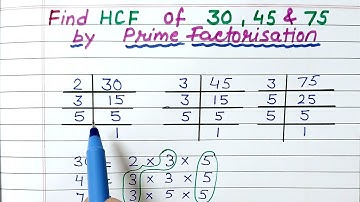 Find HCF of 30, 45 & 75
by Prime Factorisation
2 30 3 45 3 75
3 15 3 15 5 25
5 5 5 5 5 5
1 1 1
30 = 2 x 3 x 5
4 = 3 x 3 x 5
7 3 x 5 x 5